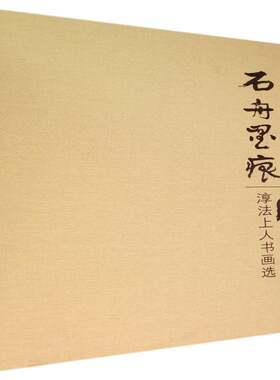 石舟墨痕
淳法上人书画选